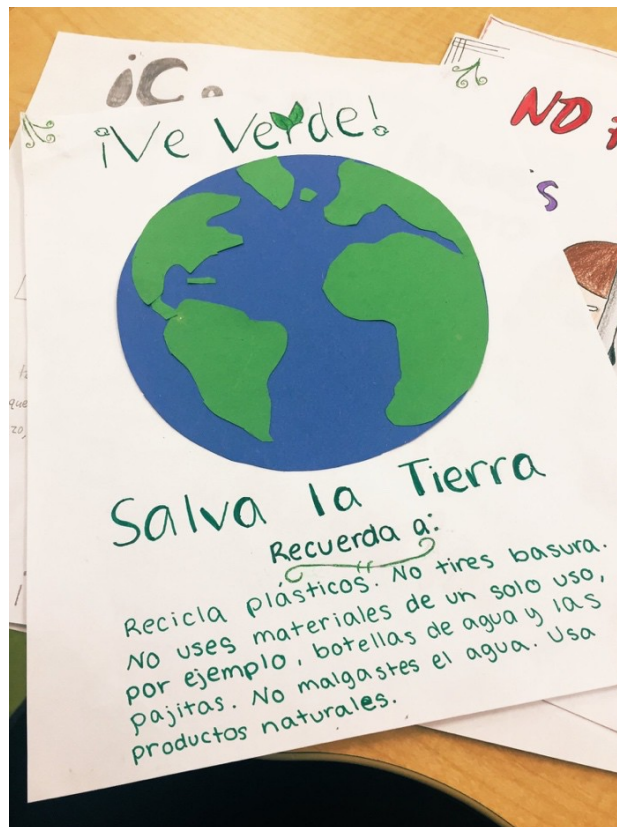 ¡C
NO
s
¡Ve Verde!
Salva la Tierra
Recuerda a:
Recicla plásticos. No tires basura.
No uses materiales de un solo uso,
por ejemplo, botellas de agua y las
pajitas. No malgastes el agua. Usa
productos naturales.
que